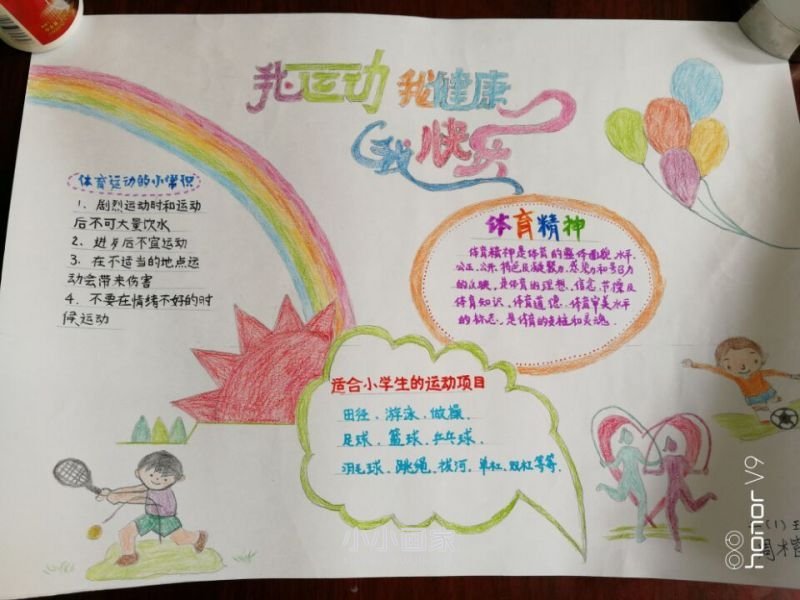 我运动 我健康
我快乐
体育运动的小常识
1、剧烈运动时和运动
后不可大量饮水
2、进歺后不宜运动
3、在不适当的地点运
动会带来伤害
4、不要在情绪不好的时
候运动
体育精神
体育精神是体育的整体面貌、水平、
公正、公开、特色及凝聚力、感染力和号召力
的反映，是体育的理想、信念、节操及
体育知识、体育道德、体育审美水平
的标志，是体育的支柱和灵魂。
适合小学生的运动项目
田径、游泳、做操、
足球、篮球、乒乓球、
羽毛球、跳绳、拔河、单杠、双杠等等。
小小画家
honor V9